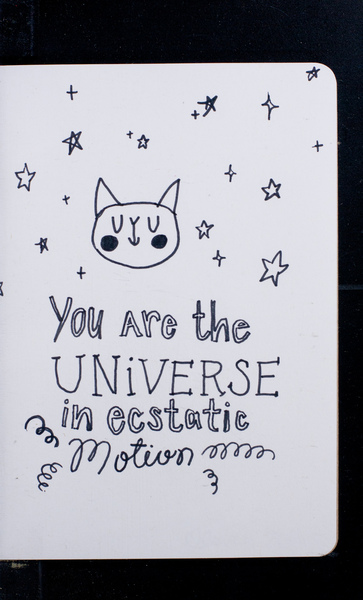 You Are the
UNiVERSE
in ecstatic
Motion